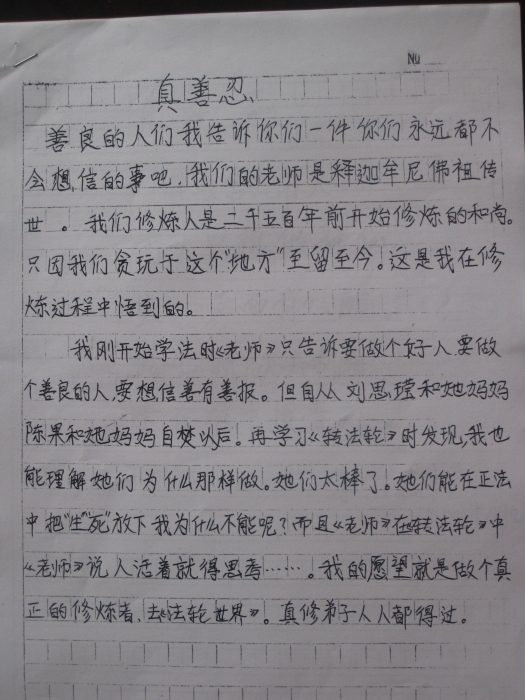 NU
真善忍
善良的人们我告诉你们一件你们永远都不
会想信的事吧.我们的老师是释迦牟尼佛祖传
世。我们修炼人是二千五百年前开始修炼的和尚。
只因我们贪玩于这个"地方"至留至今！这是我在修
炼过程中悟到的。
我刚开始学法时《老师》只告诉要做个好人.要做
个善良的人,要想信善有善报。但自从刘思莹和她妈妈
陈果和她妈妈自焚以后。再学习《转法轮》时发现,我也
能理解她们为什么那样做。她们太棒了。她们能在正法
中把"生""死"放下我为什么不能呢？而且《老师》在《转法轮》中
《老师》说人活着就得思考……。我的愿望就是做个真
正的修炼者.去《法轮世界》。真修弟子人人都得过。